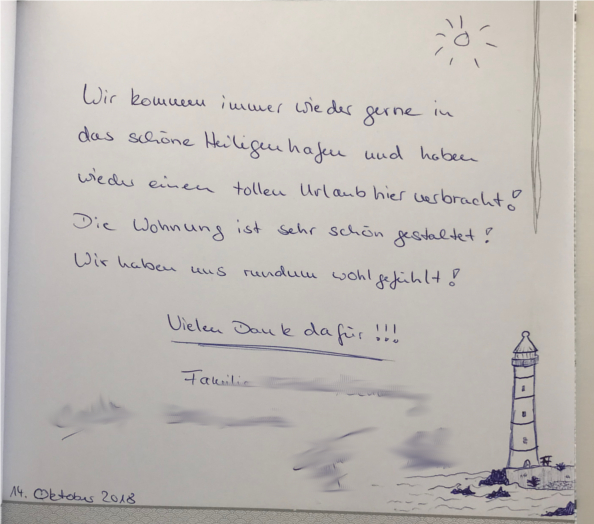 Wir kommen immer wieder gerne in
das schöne Heiligenhafen und haben
wieder einen tollen Urlaub hier verbracht!
Die Wohnung ist sehr schön gestaltet!
Wir haben uns rundum wohlgefühlt!
Vielen Dank dafür!!!
Familie
14. Oktober 2018